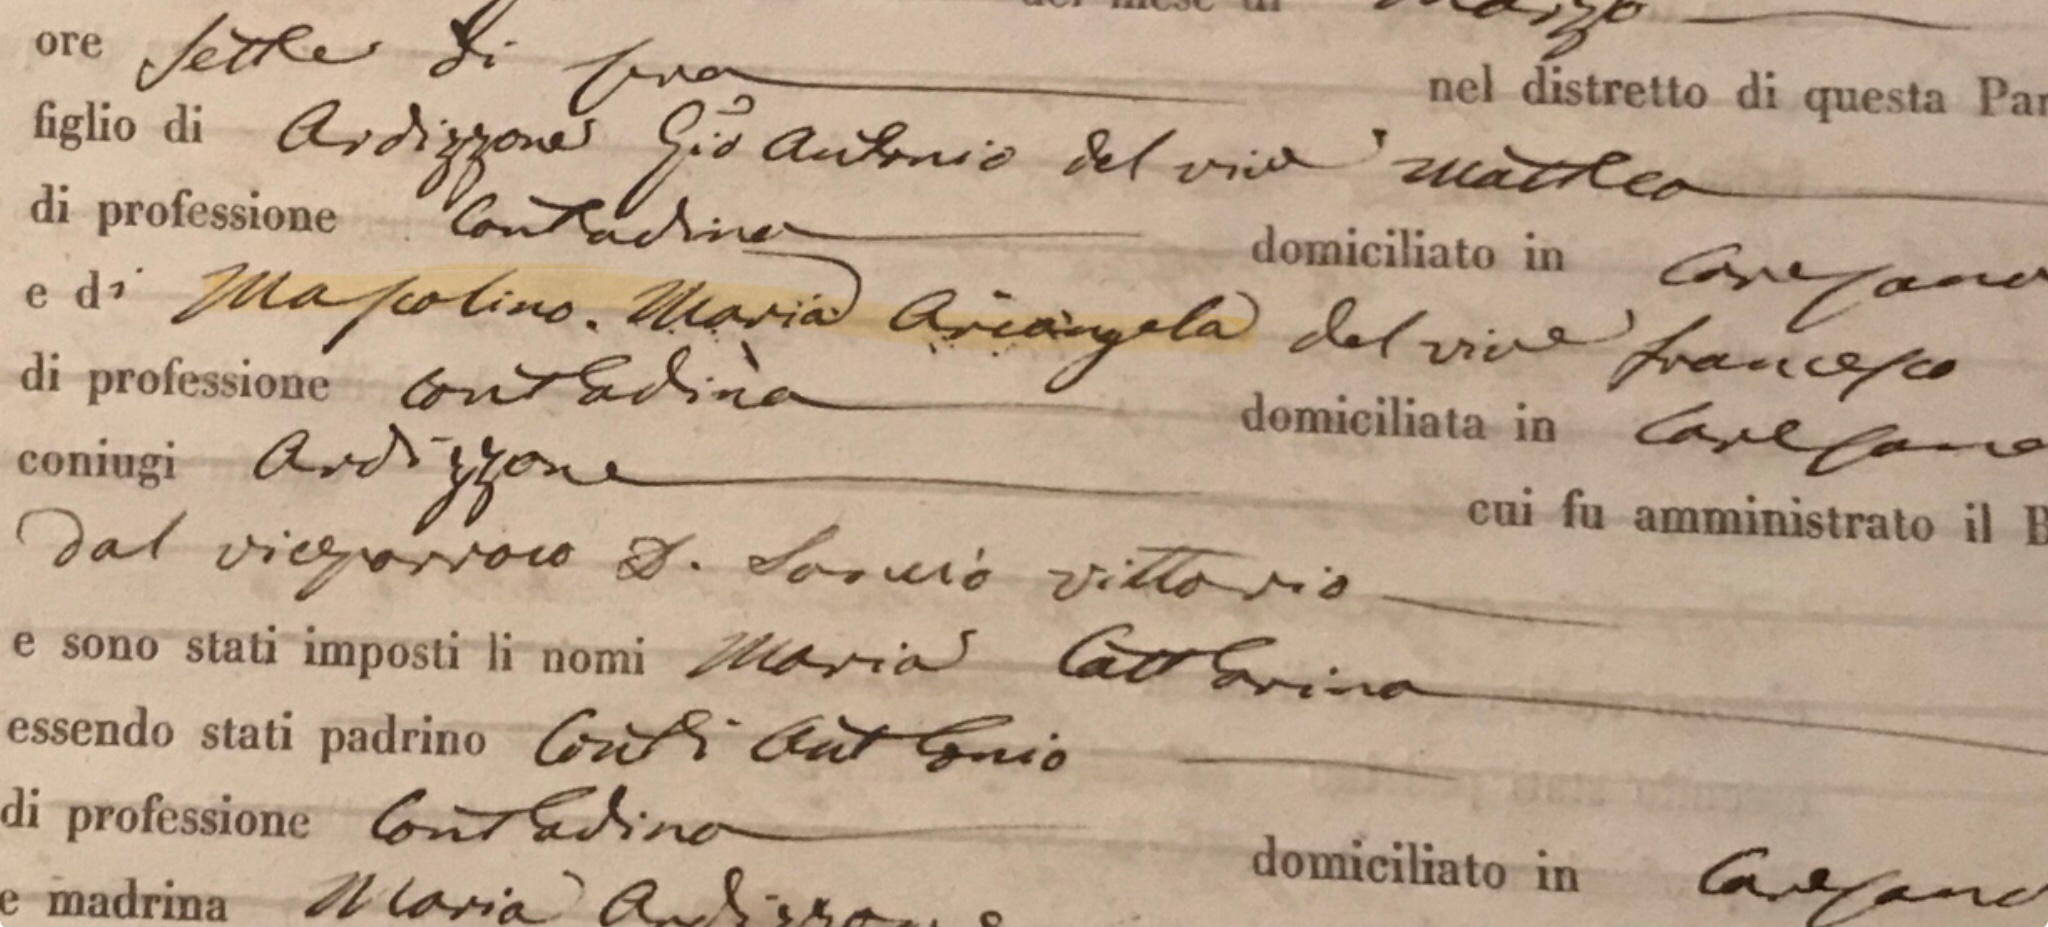 del mese di Marzo
ore sette di sera nel distretto di questa Par
figlio di Ardizzone Gio Antonio del vivo Matteo
di professione Contadino domiciliato in Caresano
e di Mascolino. Maria Arcangela del vivo francesco
di professione contadina domiciliata in Caresano
coniugi Ardizzone cui fu amministrato il B
dal viceparroco D. vittorio
e sono stati imposti li nomi Maria Catterina
essendo stati padrino Conti Antonio
di professione Contadino domiciliato in Caresano
e madrina Maria Ardizzone